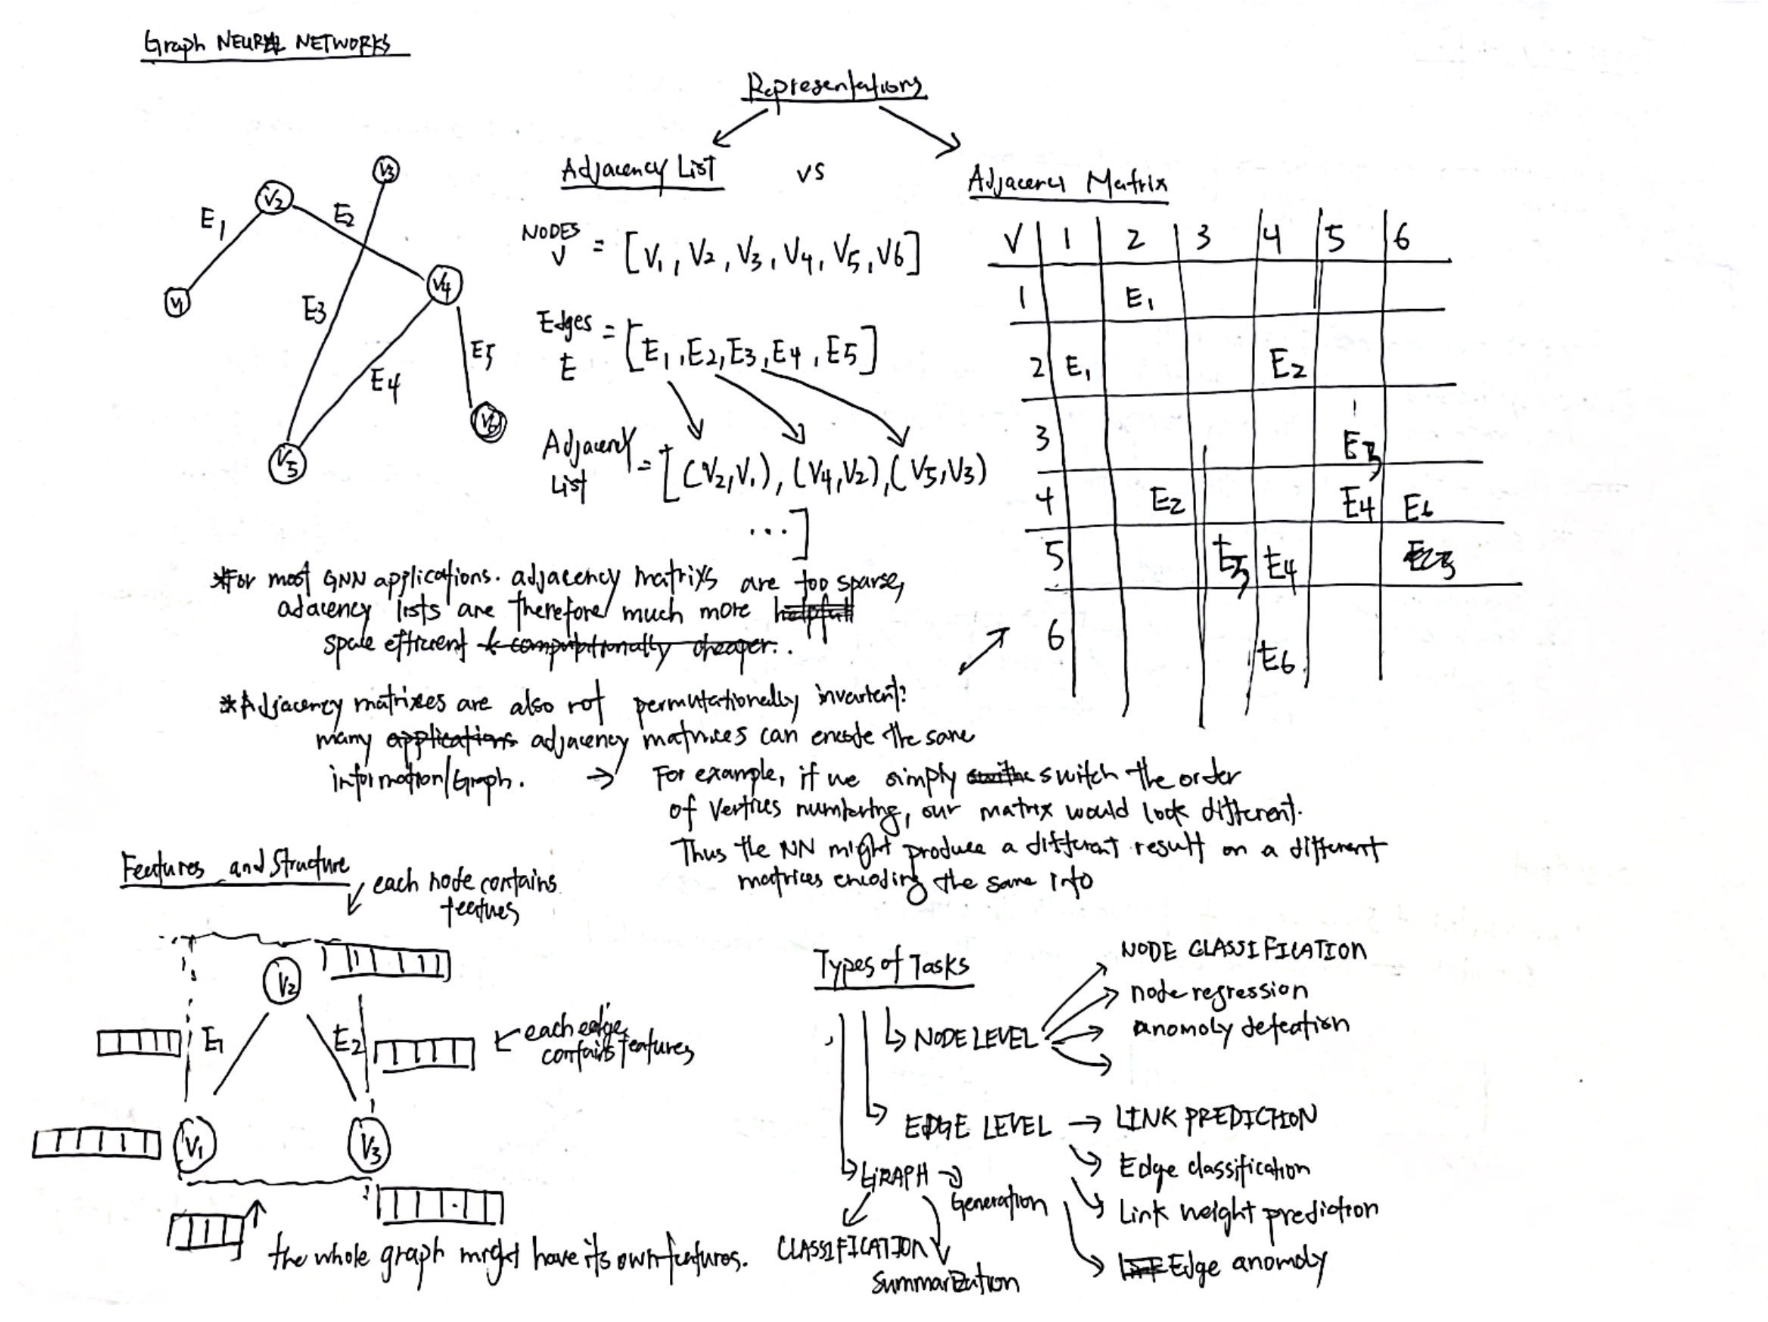 Graph NEURAL NETWORKS
Representations
Adjacency List vs Adjacency Matrix
V1 V2 V3 V4 V5 V6
E1 E2 E3 E4 E5
NODES V = [V1, V2, V3, V4, V5, V6]
Edges E = [E1, E2, E3, E4, E5]
Adjacency List = [(V2,V1), (V4,V2), (V5,V3)
...]
V | 1 | 2 | 3 | 4 | 5 | 6
1 E1
2 E1 E2
3 E3
4 E2 E4 E6
5 E3 E4
6 E6
*For most GNN applications. adjacency matrixs are too sparse,
adacency lists are therefore much more helpful
space efficient & computationally cheaper..
*Adjacency matrixes are also not permutationally invarient:
many applications adjacency matrices can encode the same
information/Graph. →
For example, if we simply switch the order
of vertices numbering, our matrix would look different.
Thus the NN might produce a different result on a different
matrices encoding the same info
Features and Structure
each node contains
features
V2
E1 E2
each edge
contains features
V1 V3
the whole graph might have its own features.
Types of Tasks
NODE LEVEL
NODE CLASSIFICATION
node regression
anomoly detection
EDGE LEVEL → LINK PREDICTION
Edge classification
Link weight prediction
Edge anomoly
GRAPH
Generation
CLASSIFICATION
Summarization